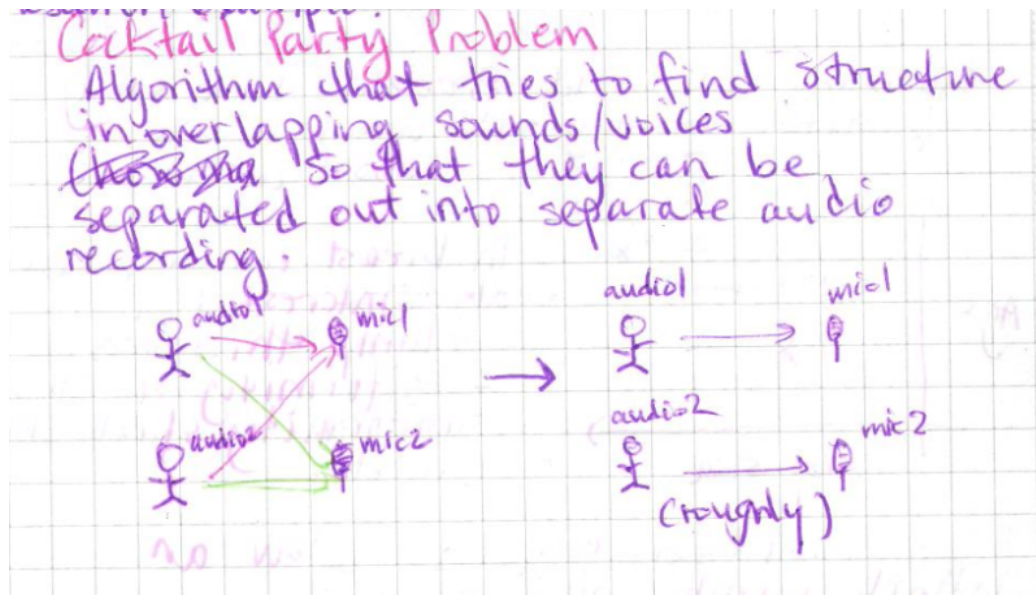 Cocktail Party Problem
Algorithm that tries to find structure
in overlapping sounds/voices
so that they can be
separated out into separate audio
recording.
audio1 mic1
audio2 mic2
audio1 mic1
audio2 mic2
(roughly)